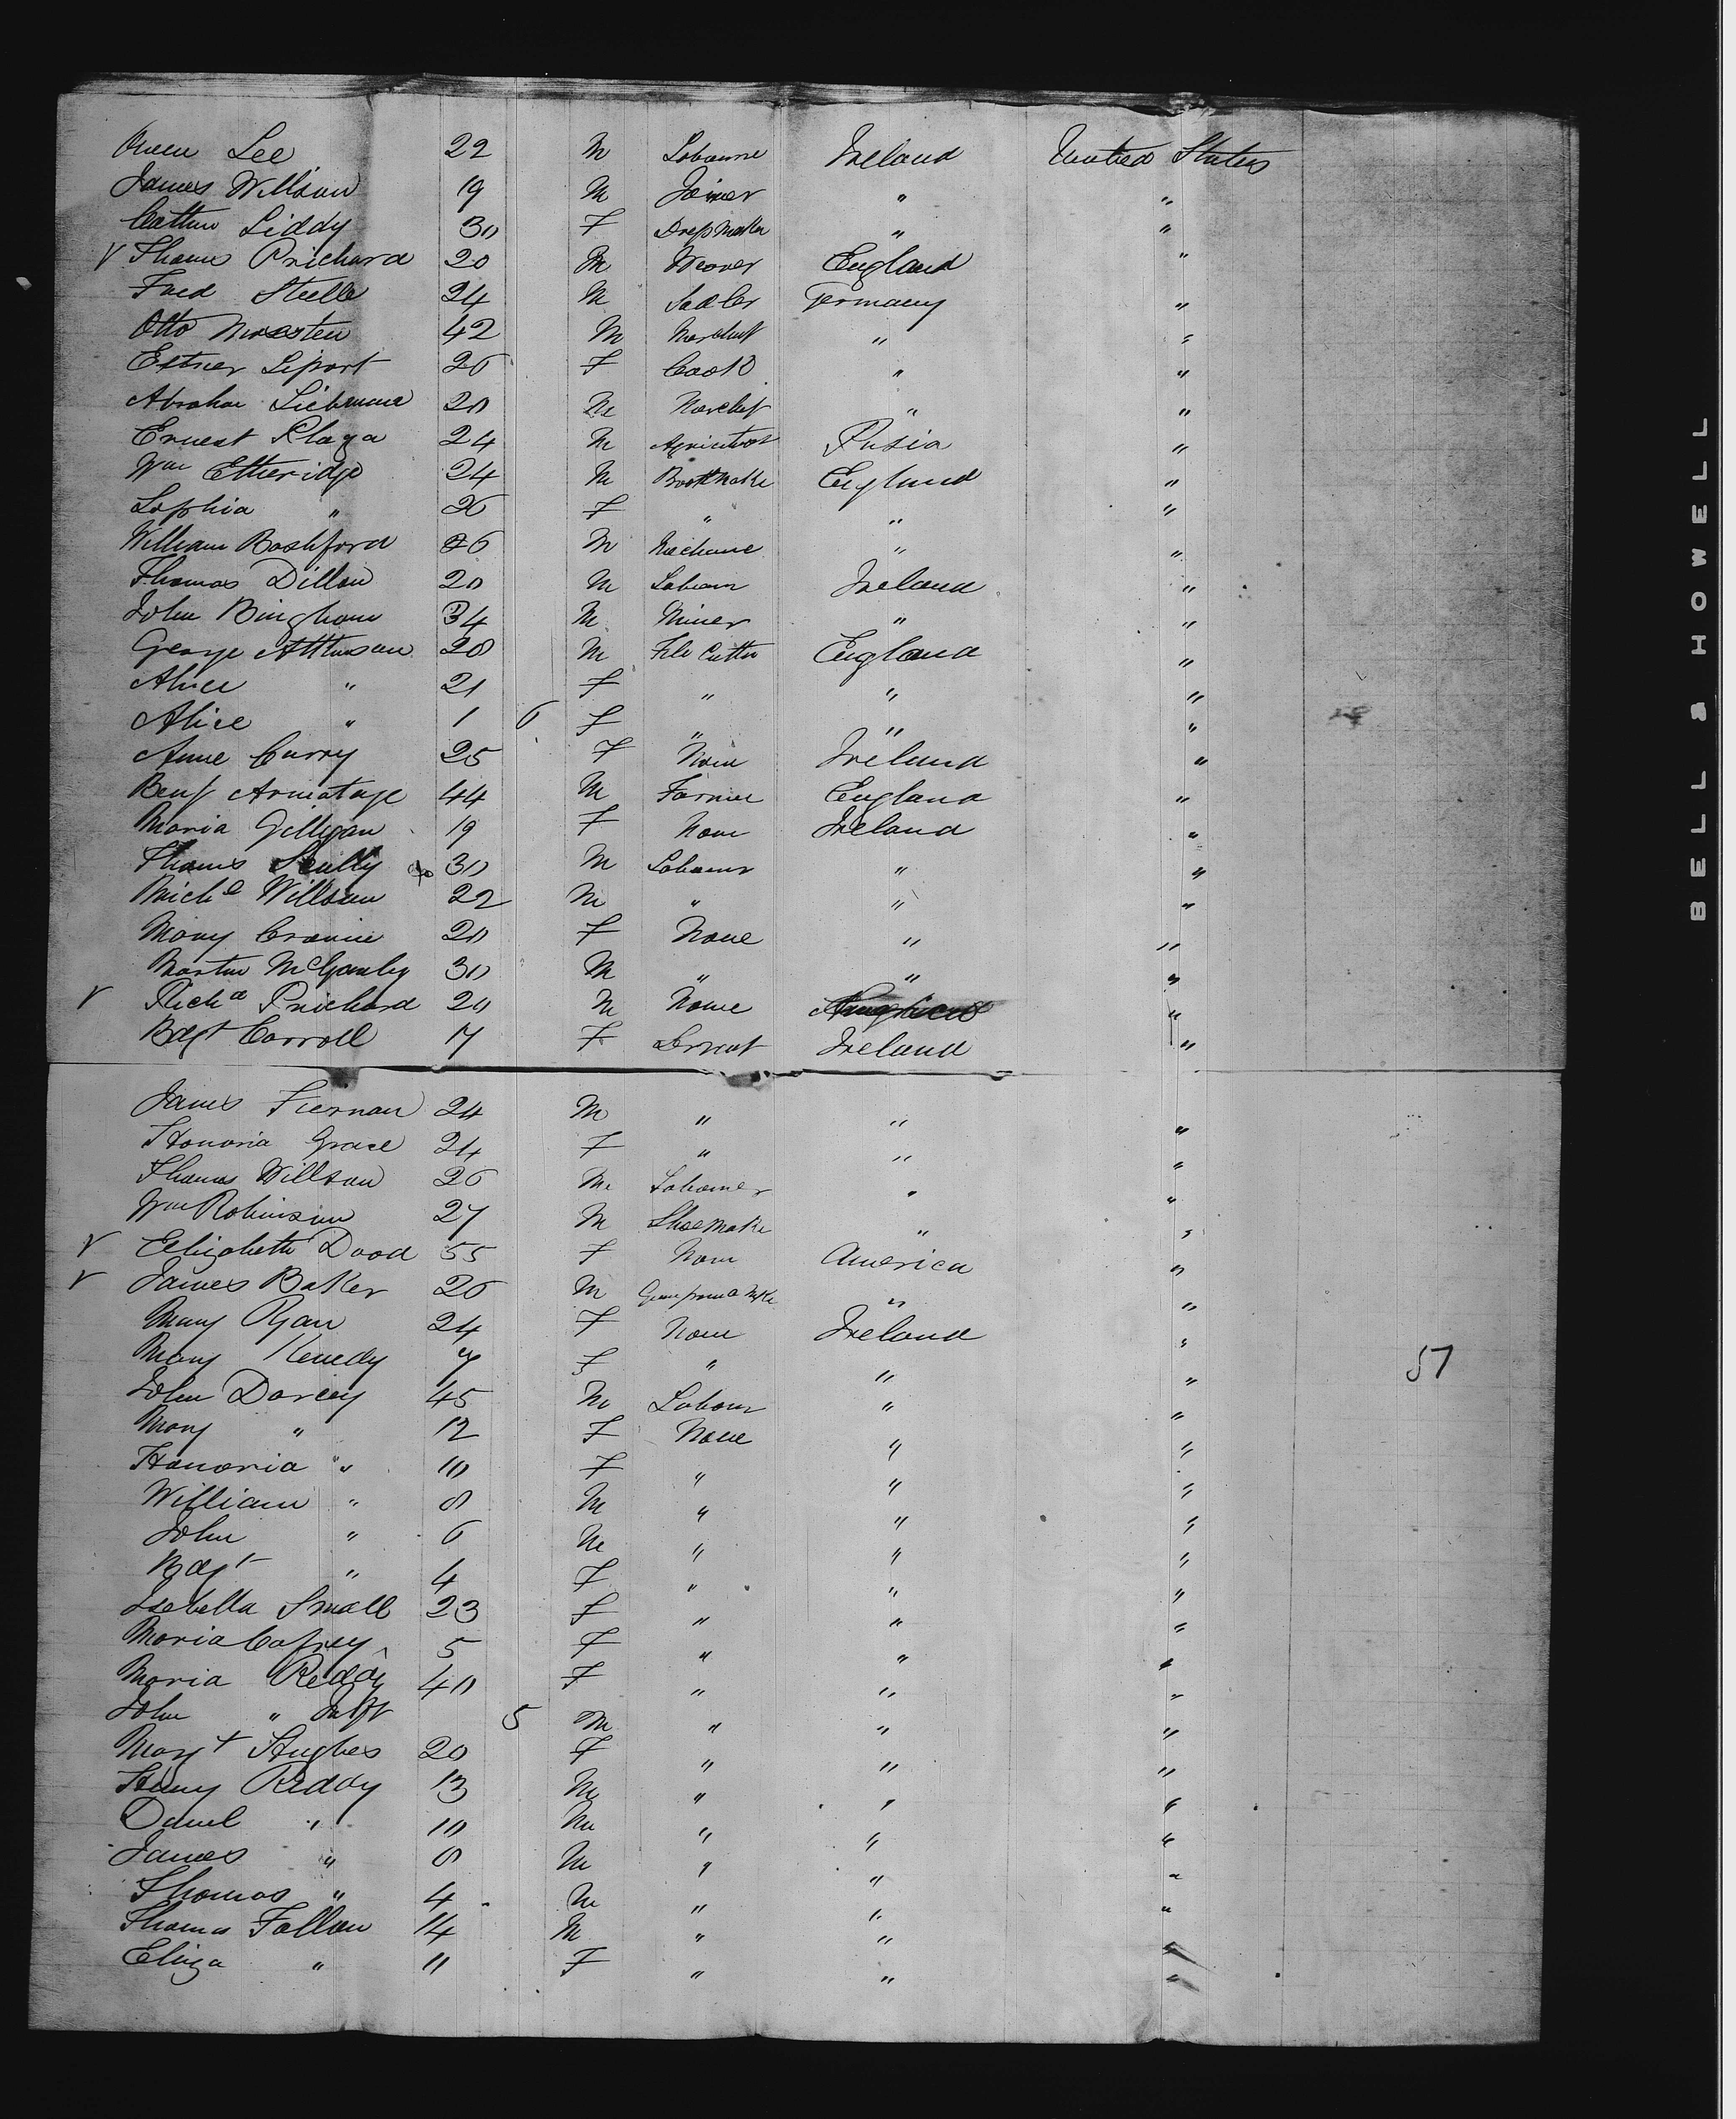 Owen Lee 22 M Labourer Ireland United States
James Willson 19 M Joiner " "
Cathne Liddy 30 F Dressmaker " "
V Thomas Prichard 20 M Weaver England "
Fred Steelle 24 M Sadler Germany "
Otto 42 M Marchnt " "
Esther Liport 26 F Cook " "
Abraham Liebmann 20 M Marcht " "
Ernest Plaga 24 M Prusia "
Wm Etheridge 24 M Bootmake England "
Sophia " 26 F " " "
William Bashford 26 M Mechanic " "
Thomas Dillon 20 M Labourr Ireland "
John Bingham 34 M Miner " "
George Atkinson 28 M File Cutter England "
Alice " 21 F " " "
Alice " 1 6 F " " "
Anne Curry 25 F None Ireland "
Benj Armatage 44 M Farmer England "
Maria Gilligan 19 F None Ireland "
Thomas Scully 30 M Labourer " "
Michl Willson 22 M " " "
Mary Cronin 20 F None " "
Martin McGanley 30 M " " "
V Richd Prichard 20 M None "
Bdgt Carroll 17 F Servnt Ireland "
James Tiernan 24 M " " "
Honoria Grace 24 F " " "
Thomas Willson 26 M Labourer " "
Wm Robinson 27 M Shoemake " "
V Elizabeth Dood 55 F None America "
V James Baker 26 M " "
Mary Ryan 24 F None Ireland "
Mary Kenedy 7 F " " "
57
John Darcey 45 M Labourr " "
Mary " 12 F None " "
Honoria " 10 F " " "
William " 8 M " " "
John " 6 M " " "
Bdgt " 4 F " " "
Isabella Small 23 F " " "
Maria Cafrey 5 F " " "
Maria Reddy 40 F " " "
John " Infт 5 M " " "
Margt Hughes 20 F " " "
Henry Reddy 13 M " " "
Danel " 10 M " " "
James " 8 M " " "
Thomas " 4 M " " "
Thomas Fallon 14 M " " "
Eliza " 11 F " " "
BELL & HOWELL